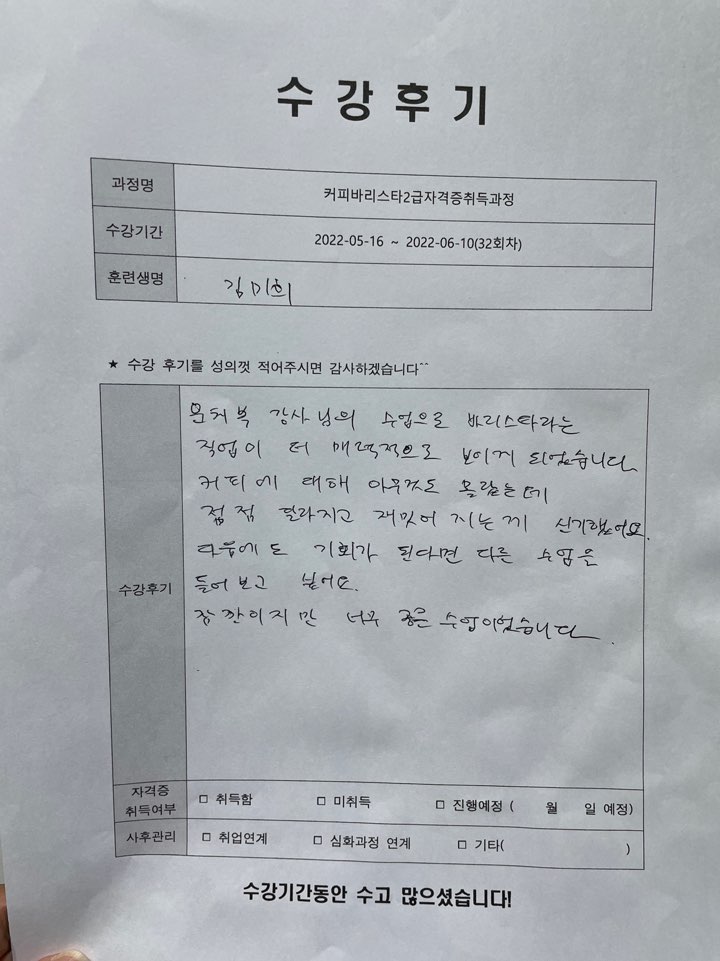 수강후기
과정명 커피바리스타2급자격증취득과정
수강기간 2022-05-16 ~ 2022-06-10(32회차)
훈련생명 김미희
★ 수강 후기를 성의껏 적어주시면 감사하겠습니다^^
강사님의 수업으로 바리스타라는
직업이 더 매력적으로 보이게 되었습니다
커피에 대해 아무것도 몰랐는데
점점 달라지고 재밌어 지는게 신기했어요.
다음에도 기회가 된다면 다른 수업을
수강후기
들어보고 싶어요.
잠깐이지만 너무 좋은 수업이었습니다.
자격증
취득여부 □ 취득함 □ 미취득 □ 진행예정 ( 월 일 예정)
사후관리 □ 취업연계 □ 심화과정 연계 □ 기타( )
수강기간동안 수고 많으셨습니다!